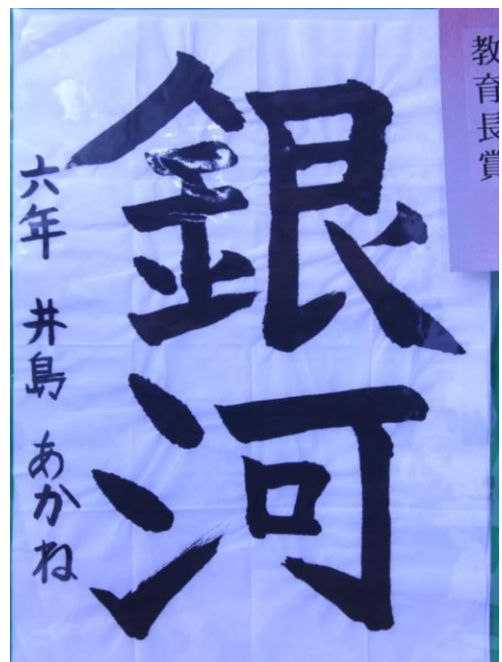 教育長賞
銀河
六年 井島 あかね